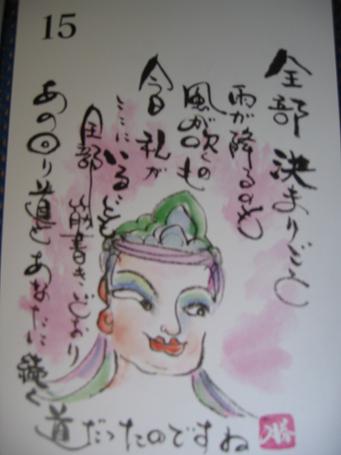 15
全部 決まりごと
雨が降るのも
風が吹くのも
今日 私が
ここにいることも
全部 筋書きどおり
あの回り道もあなたに続く
道だったのですね
勝